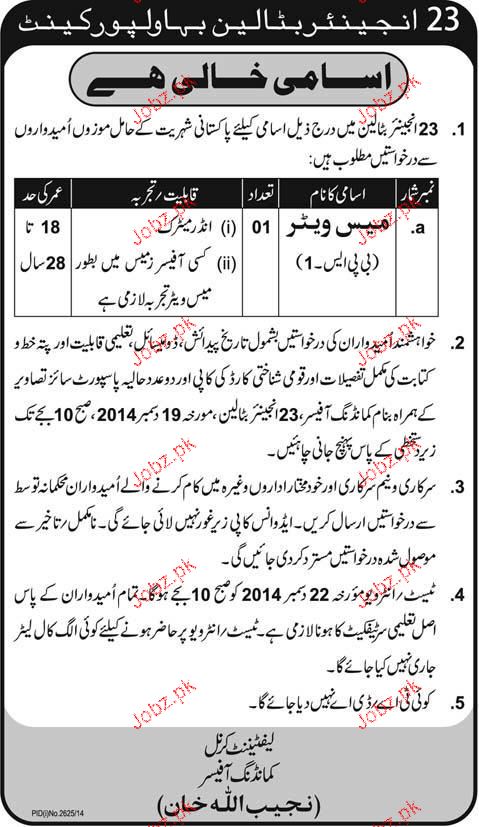 23 انجینئر بٹالین بہاولپور کینٹ
اسامی خالی ھے
1. 23 انجینئر بٹالین میں درج ذیل اسامی کیلئے پاکستانی شہریت کے حامل موزوں اُمیدواروں
سے درخواستیں مطلوب ہیں:
نمبر شمار اسامی کا نام تعداد قابلیت/تجربہ عمر کی حد
a. میس ویٹر 01 (i) انڈر میٹرک 18 تا
(بی پی ایس۔1) (ii) کسی آفیسرز میس میں بطور 28 سال
میس ویٹر تجربہ لازمی ہے
2. خواہشمند اُمیدواران کی درخواستیں بشمول تاریخ پیدائش، ڈومیسائل، تعلیمی قابلیت اور پتہ خط و
کتابت کی مکمل تفصیلات اور قومی شناختی کارڈ کی کاپی اور دو عدد حالیہ پاسپورٹ سائز تصاویر
کے ہمراہ بنام کمانڈنگ آفیسر، 23 انجینئر بٹالین، مورخہ 19 دسمبر 2014، صبح 10 بجے تک
زیر دستخطی کے پاس پہنچ جانی چاہئیں۔
3. سرکاری و نیم سرکاری اور خود مختار اداروں وغیرہ میں کام کرنے والے اُمیدواران محکمانہ توسط
سے درخواستیں ارسال کریں۔ ایڈوانس کاپی زیر غور نہیں لائی جائے گی۔ نامکمل/تاخیر سے
موصول شدہ درخواستیں مسترد کر دی جائیں گی۔
4. ٹیسٹ/انٹرویو مورخہ 22 دسمبر 2014 کو صبح 10 بجے ہوگا۔ تمام اُمیدواران کے پاس
اصل تعلیمی سرٹیفکیٹ کا ہونا لازمی ہے۔ ٹیسٹ/انٹرویو پر حاضر ہونے کیلئے کوئی الگ کال لیٹر
جاری نہیں کیا جائے گا۔
5. کوئی ٹی اے/ڈی اے نہیں دیا جائے گا۔
لیفٹیننٹ کرنل
کمانڈنگ آفیسر
(نجیب اللہ خان)
PID(i)No.2625/14
Jobz.pk